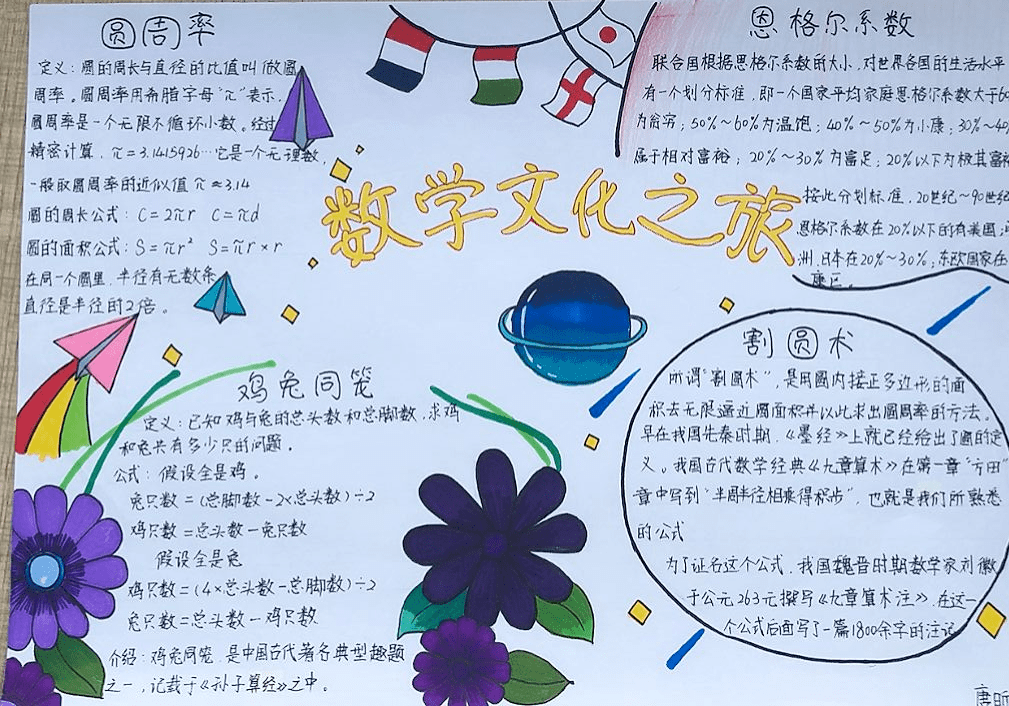 圆周率
定义：圆的周长与直径的比值叫做圆
周率。圆周率用希腊字母"π"表示，
圆周率是一个无限不循环小数。经过
精密计算，π=3.1415926…它是一个无理数，
一般取圆周率的近似值π≈3.14
圆的周长公式：C=2πr C=πd
圆的面积公式：S=πr² S=πr×r
在同一个圆里，半径有无数条
直径是半径的2倍。
恩格尔系数
联合国根据恩格尔系数的大小，对世界各国的生活水平
有一个划分标准，即一个国家平均家庭恩格尔系数大于60
为贫穷；50%～60%为温饱；40%～50%为小康；30%～40
属于相对富裕；20%～30%为富足；20%以下为极其富裕
按此划分标准，20世纪～90世纪
恩格尔系数在20%以下的有美国；
洲、日本在20%～30%；东欧国家在
康区。
数学文化之旅
鸡兔同笼
定义：已知鸡与兔的总头数和总脚数，求鸡
和兔共有多少只的问题。
公式：假设全是鸡。
兔只数=(总脚数-2×总头数)÷2
鸡只数=总头数-兔只数
假设全是兔
鸡只数=(4×总头数-总脚数)÷2
兔只数=总头数-鸡只数
介绍：鸡兔同笼，是中国古代著名典型趣题
之一，记载于《孙子算经》之中。
割圆术
所谓"割圆术"，是用圆内接正多边形的面
积去无限逼近圆面积并以此求出圆周率的方法。
早在我国先秦时期，《墨经》上就已经给出了圆的定
义。我国古代数学经典《九章算术》在第一章"方田"
章中写到"半周半径相乘得积步"，也就是我们所熟悉
的公式
为了证名这个公式，我国魏晋时期数学家刘徽
于公元263元撰写《九章算术注》，在这一
个公式后面写了一篇1800余字的注记
唐昕